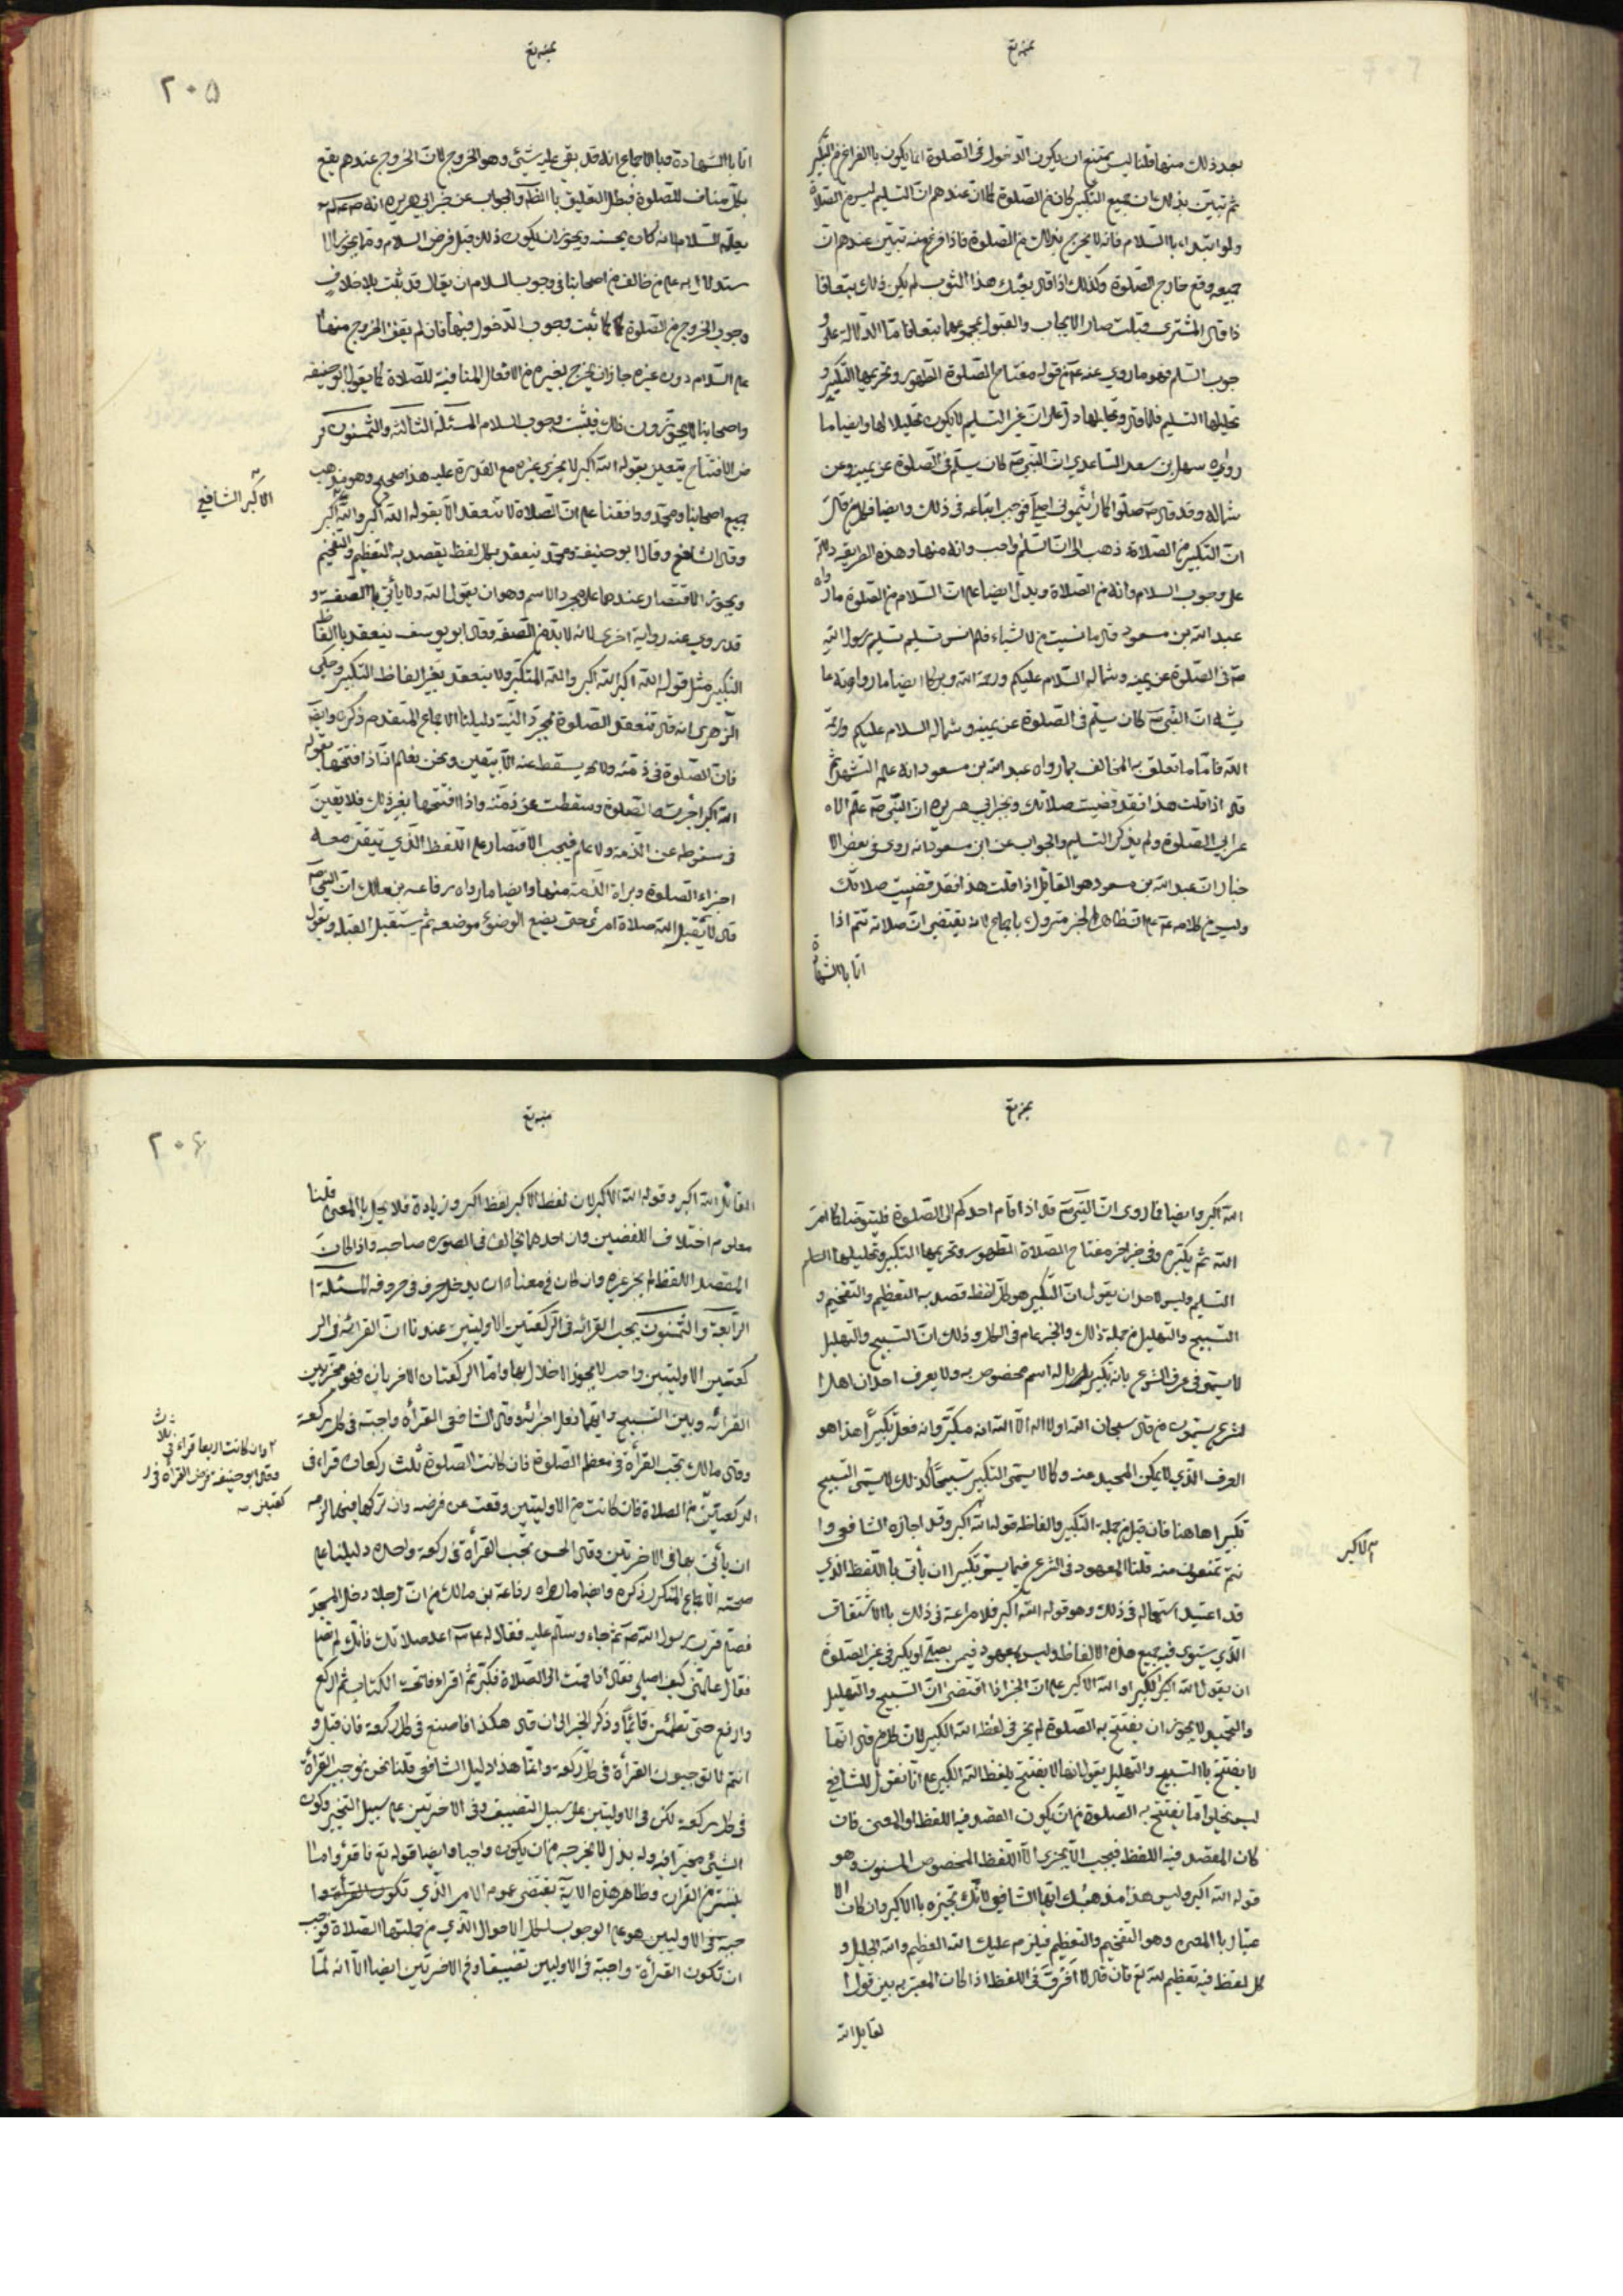 بعد ذلك منها قلنا ليس يمتنع ان يكون الدخول فى الصلوة انما يكون باالفراغ من التكبير
ثم تبيّن بذلك ان جميع التكبير كان من الصلوة كما انّ عندهم انّ التسليم ليس من الصلاة
ولو ابتداء باالسّلام فانه لا يخرج بذلك من الصلوة فاذا فرغ منه تبيّن عندهم انّ
جميعه وقع خارج الصلوة وكذلك اذا قال بعتك هذا الثوب لم يكن ذلك بيعا فا
ذا قال المشترى قبلت صار الايجاب والقبول بمجموعهما بيعا فامّا الدّلالة على و
جوب التسليم فهو ما روى عنه ع من قوله مفتاح الصلوة الطهور وتحريمها التكبير و
تحليلها التسليم فلمّا قال وتحليلها دلّ على انّ غير التسليم لا يكون تحليلا لها وايضا ما
رواه سهل بن سعد الساعدي انّ النبيّ ص كان يسلّم فى الصلوة عن يمينه وعن
شماله وقد قال ص صلّوا كما رأيتموني اصلّي فوجب اتباعه فى ذلك وايضا فكلّ من قال
انّ التكبير من الصلاة ذهب الى انّ التسليم واجب وانه منها وهذه الطريقه دالة
على وجوب السلام وانه من الصلاة ويدلّ ايضا على انّ السّلام من الصلوة ما رواه
عبد الله بن مسعود قال ما نسيت من الاشياء فلم انس تسليم تسليم رسول الله
ص فى الصلوة عن يمينه وشماله السلام عليكم ورحمة الله وبركاته ايضا ما روا
يشه انّ النبيّ ص كان يسلّم فى الصلوة عن يمينه وشماله السلام عليكم ورحمة
الله فامّا ما تعلق به المخالف بما رواه عبد الله بن مسعود انه علم التشهد ثم
قال اذا قلت هذا فقد قضيت صلاتك وبخبر ابي هريرة انّ النبيّ ص علّم الا
عرابي الصلوة ولم يذكر التسليم والجواب عن ابن مسعود انه روى فى بعض الا
خبار انّ عبد الله بن مسعود هو القايل اذا قلت هذا فقد قضيت صلاتك
وليس من كلامه ع على انّ ظاهر الخبر متروك باجماع لانه يقتضى انّ صلاته تتم اذا
اتا باالشهادة
٢٠٥
اتا باالشهادة وبا الاجماع انه قد بقي عليه شيئ وهو الخروج لانّ الخروج عندهم يقع
بكلّ مناف للصلوة فبطل التعليق باالظاهر والجواب عن خبر ابي هريرة انه ص
يعلّمه السّلام لانه كان يحسنه ويجوز ان يكون ذلك قبل فرض السلام وممّا يجوز الا
ستدلال به على من خالف من اصحابنا فى وجوب السلام ان يقال قد ثبت بلا خلاف
وجوب الخروج من الصلوة كما ثبت وجوب الدّخول فيها فان لم يقف الخروج منها
على السّلام دون غيره جاز ان يخرج بغيره من الافعال المنافية للصلاة كما يقوله ابو حنيفه
واصحابنا لا يجوّزون ذلك فيثبت وجوب السلام المسئلة الثالثة والثمنون فر
ض الافتتاح يتعين بقوله الله اكبر لا يجزى غيره مع القدرة عليه هذا صحيح وهو مذهب
جميع اصحابنا ومحمّد ووافقنا على انّ الصلاة لا تنعقد الّا بقوله الله اكبر والله اكبر
الاكبر الشافعي
وقال الشافعي وقال ابو حنيفه ومحمّد ينعقد بكلّ لفظ يقصد به التعظيم والتفخيم
ويجوز الاقتصار عندهما على مجرد الاسم وهو ان يقول الله ولا يأتى باالصفة و
قد روى عنه رواية اخرى لانه لا بدّ من الصفة وقال ابو يوسف ينعقد باالفاظ
التكبير مثل قوله الله اكبر الله اكبر والله المتكبّر ولا ينعقد بغير الفاظ التكبير وحكى
الزهرى انه قال تنعقد الصلوة بمجرّد النية دليلنا الاجماع المتقدم ذكره وايضا
فانّ الصّلوة فى ذمّته ولا يسقط عنه الّا بيقين ونحن نعلم انّه اذا افتتحها بقوله
الله اكبر اجزت الصّلوة وسقطت عن ذمّته واذا افتتحها بغير ذلك فلا يقين
فى سقوطه عن الذّمة ولا علم فيجب الاقتصار على اللّفظ الّذي يتيقّن معه
اجزاء الصلوة وبراة الذّمة منها وايضا ما رواه رفاعه بن مالك انّ النبيّ ص
قال لا يقبل الله صلاة امرئ حتى يضع الوضوء موضعه ثم يستقبل القبله ويقول
الله اكبر وايضا فما روى انّ النبيّ ص قال اذا قام احدكم الى الصلوة فليتوضأ كما امر
الله ثم يكبّر وفى خبر اخر مفتاح الصلاة الطهور وتحريمها التكبير وتحليلها السلم
التسليم وليس لاحد ان يقول انّ التكبير هو كلّ لفظ قصد به التعظيم والتفخيم و
التسبيح والتهليل من جملة ذلك والخبر عام فى الكل وذلك انّ التسبيح والتهليل
لا يسمّى فى عرف الشرع بانه تكبير بل له اسم مخصوص به ولا يعرف احد ان اهل ا
لشرع يسمّون من قال سبحان الله اولا اله الّا الله انه مكبّر وانه فعل تكبيرًا هذا هو
العرف الّذي لا يمكن المحيد عنه وكما لا يسمّى التكبير تسبيحًا كذلك لا يسمّى التسبيح
تكبيرا هاهنا فان قيل من جملة التكبير والفاظه قوله الله اكبر وقد اجازه الشافعي وا
الاكبر
نتم تمنعون منه قلنا المعهود فى الشرع فيما يسمّى تكبيرا ان يأتى باللّفظ الذي
قد اعتيد استعماله فى ذلك وهو قوله الله اكبر فلا مراعة فى ذلك باالاشتقاق
الّذي يستوى فيه جميع هذه الالفاظ وليس بمعهود فيمن يصلّى او يكبر فى غير الصلوة
ان يقول الله الكبير او الله الاكبر على انّ الخبر اذا اقتضى انّ التسبيح والتهليل
والتحميد لا يجوز ان يفتتح به الصلوة لم يجز فى لفظ الله الكبير لانّ كلّ من قال انّها
لا يفتتح باالتسبيح والتهليل يقول انها لا يفتتح بلفظ الله الكبير على انّا نقول للشافعي
ليس يخلوا ما يفتتح به الصّلوة من ان يكون القصد فيه اللفظ او المعنى فان
كان المقصد فيه اللفظ فيجب الّا يجزى الّا اللّفظ المخصوص المسنون وهو
قوله الله اكبر وليس هذا مذهبك ايّها الشافعي لانّك تجيزه باالاكبر وان كان الا
عتبار باالمعنى وهو التفخيم والتعظيم فيلزم عليك الله العظيم والله الجليل و
كل لفظ فيه تعظيم لله تع فان قال لا افرّق فى اللفظ اذا كان المعبّر به بين قول ا
لقايل الله
٢٠٦
القائل الله اكبر وقوله الله الاكبر لانّ لفظ الاكبر لفظ اكبر وزيادة فلا يخل باالمعنى قلنا
معلوم اختلاف اللفضين وانّ احدهما يخالف فى الصوره صاحبه واذا كان
المقصد اللفظ لم يجز غيره وان كان فى معناه ان يدخل حرف فى حروفه المسئلة ا
الرّابعة والثّمنون يجب القرائه فى الركعتين الاوليتين عندنا انّ القرائه فى الر
كعتين الاوليتين واجب لا يجوز الاخلال بها وامّا الركعتان الاخريان فهو مخيّر بين
القرائه وبين التسبيح وايّهما فعل اجزائه وقال الشافعى القرأة واجبة فى كل ركعة
وقال مالك يجب القرأة فى معظم الصلوة فان كانت الصّلوة ثلث ركعات قراء فى
وان كانت اربعا قراء فى ثلاث
وقال ابو حنيفة فرض القراة فى ر
كعتين
الركعتين من الصلاة فان كانت من الاوليتين وقعت عن فرضه وان تركها فيهما لزمه
ان يأتى بها فى الاخرتين وقال الحسن تجب القرأة فى ركعة واحدة دليلنا على
صحته الاجماع المتكرر ذكره وايضا ما رواه رفاعة بن مالك من انّ رجلا دخل المسجد
فصلّى قرب رسول الله ص ثم جاء وسلّم عليه فقال له ع اعد صلاتك فانّك لم تصلّ
فقال علّمنى كيف اصلي فقال اذا قمت الى الصّلاة فكبّر ثم اقراء فاتحة الكتاب ثم اركع
وارفع حتى تطمئن قائمًا وذكر الخبر الى ان قال هكذا فاصنع فى كل ركعة فان قيل و
انتم لا توجبون القرأة فى كلّ ركعة وانمّا هذا دليل الشافعى قلنا نحن نوجب القرأة
فى كل ركعة لكن فى الاوليتين على سبيل التضييق وفى الاخريتين على سبيل التخيير وكون
الشيئ مخيّرا فيه وله بدل لا يخرجه من ان يكون واجبا وايضا قوله تع فاقرؤا ما ا
يتسّر من القران وظاهر هذه الاية يقتضى عموم الامر الّذي تكون القرأة وا
جبة فى الاوليين هو على الوجوب لكل الاحوال الّذي من جملتها الصّلاة فوجب
ان تكون القرأة واجبة فى الاوليين تضييقا وفى الاخرتين ايضا الّا انه لمّا